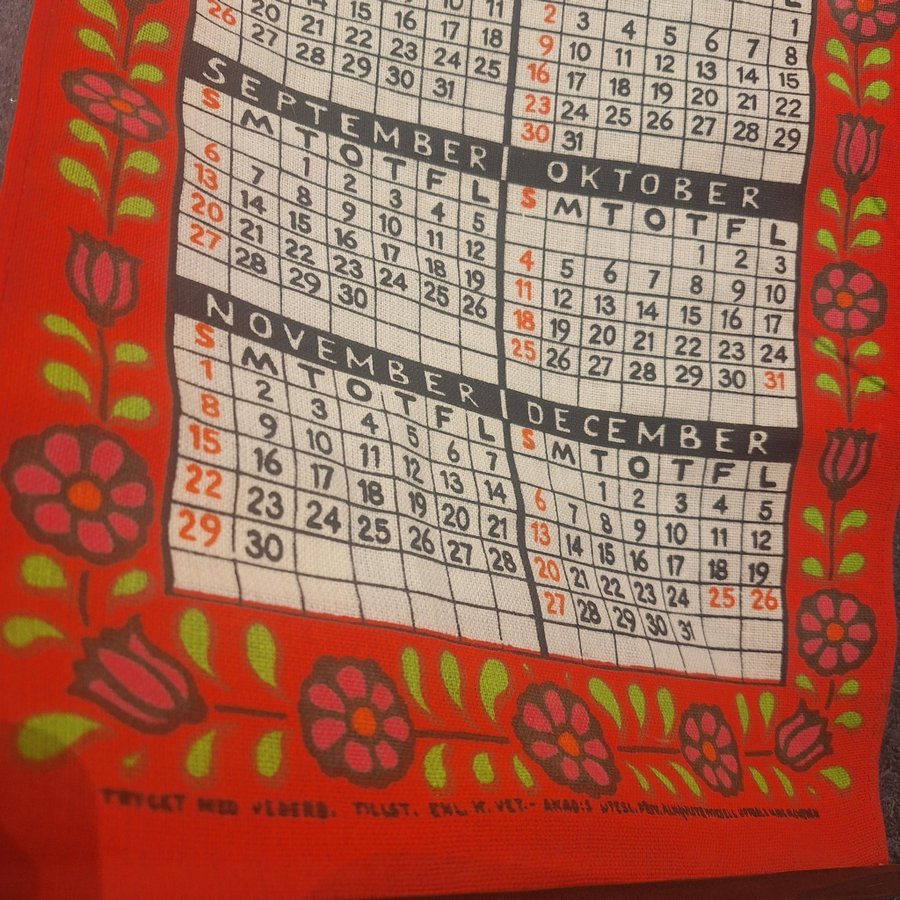 10 11
14 15 16 17 18
20 21 22 23 24 25
26 27 28 29 30 31
L
1
2 3 4 5 6 7 8
9 10 11 12 13 14 15
16 17 18 19 20 21 22
23 24 25 26 27 28 29
30 31
SEPTEMBER
S M T O T F L
1 2 3 4 5
6 7 8 9 10 11 12
13 14 15 16 17 18 19
20 21 22 23 24 25 26
27 28 29 30
OKTOBER
S M T O T F L
1 2 3
4 5 6 7 8 9 10
11 12 13 14 15 16 17
18 19 20 21 22 23 24
25 26 27 28 29 30 31
NOVEMBER
S M T O T F L
1 2 3 4 5 6 7
8 9 10 11 12 13 14
15 16 17 18 19 20 21
22 23 24 25 26 27 28
29 30
DECEMBER
S M T O T F L
1 2 3 4 5
6 7 8 9 10 11 12
13 14 15 16 17 18 19
20 21 22 23 24 25 26
27 28 29 30 31
TRYCKT MED VEDERB. TILLST. ENL. K. VET.- AKAD:S